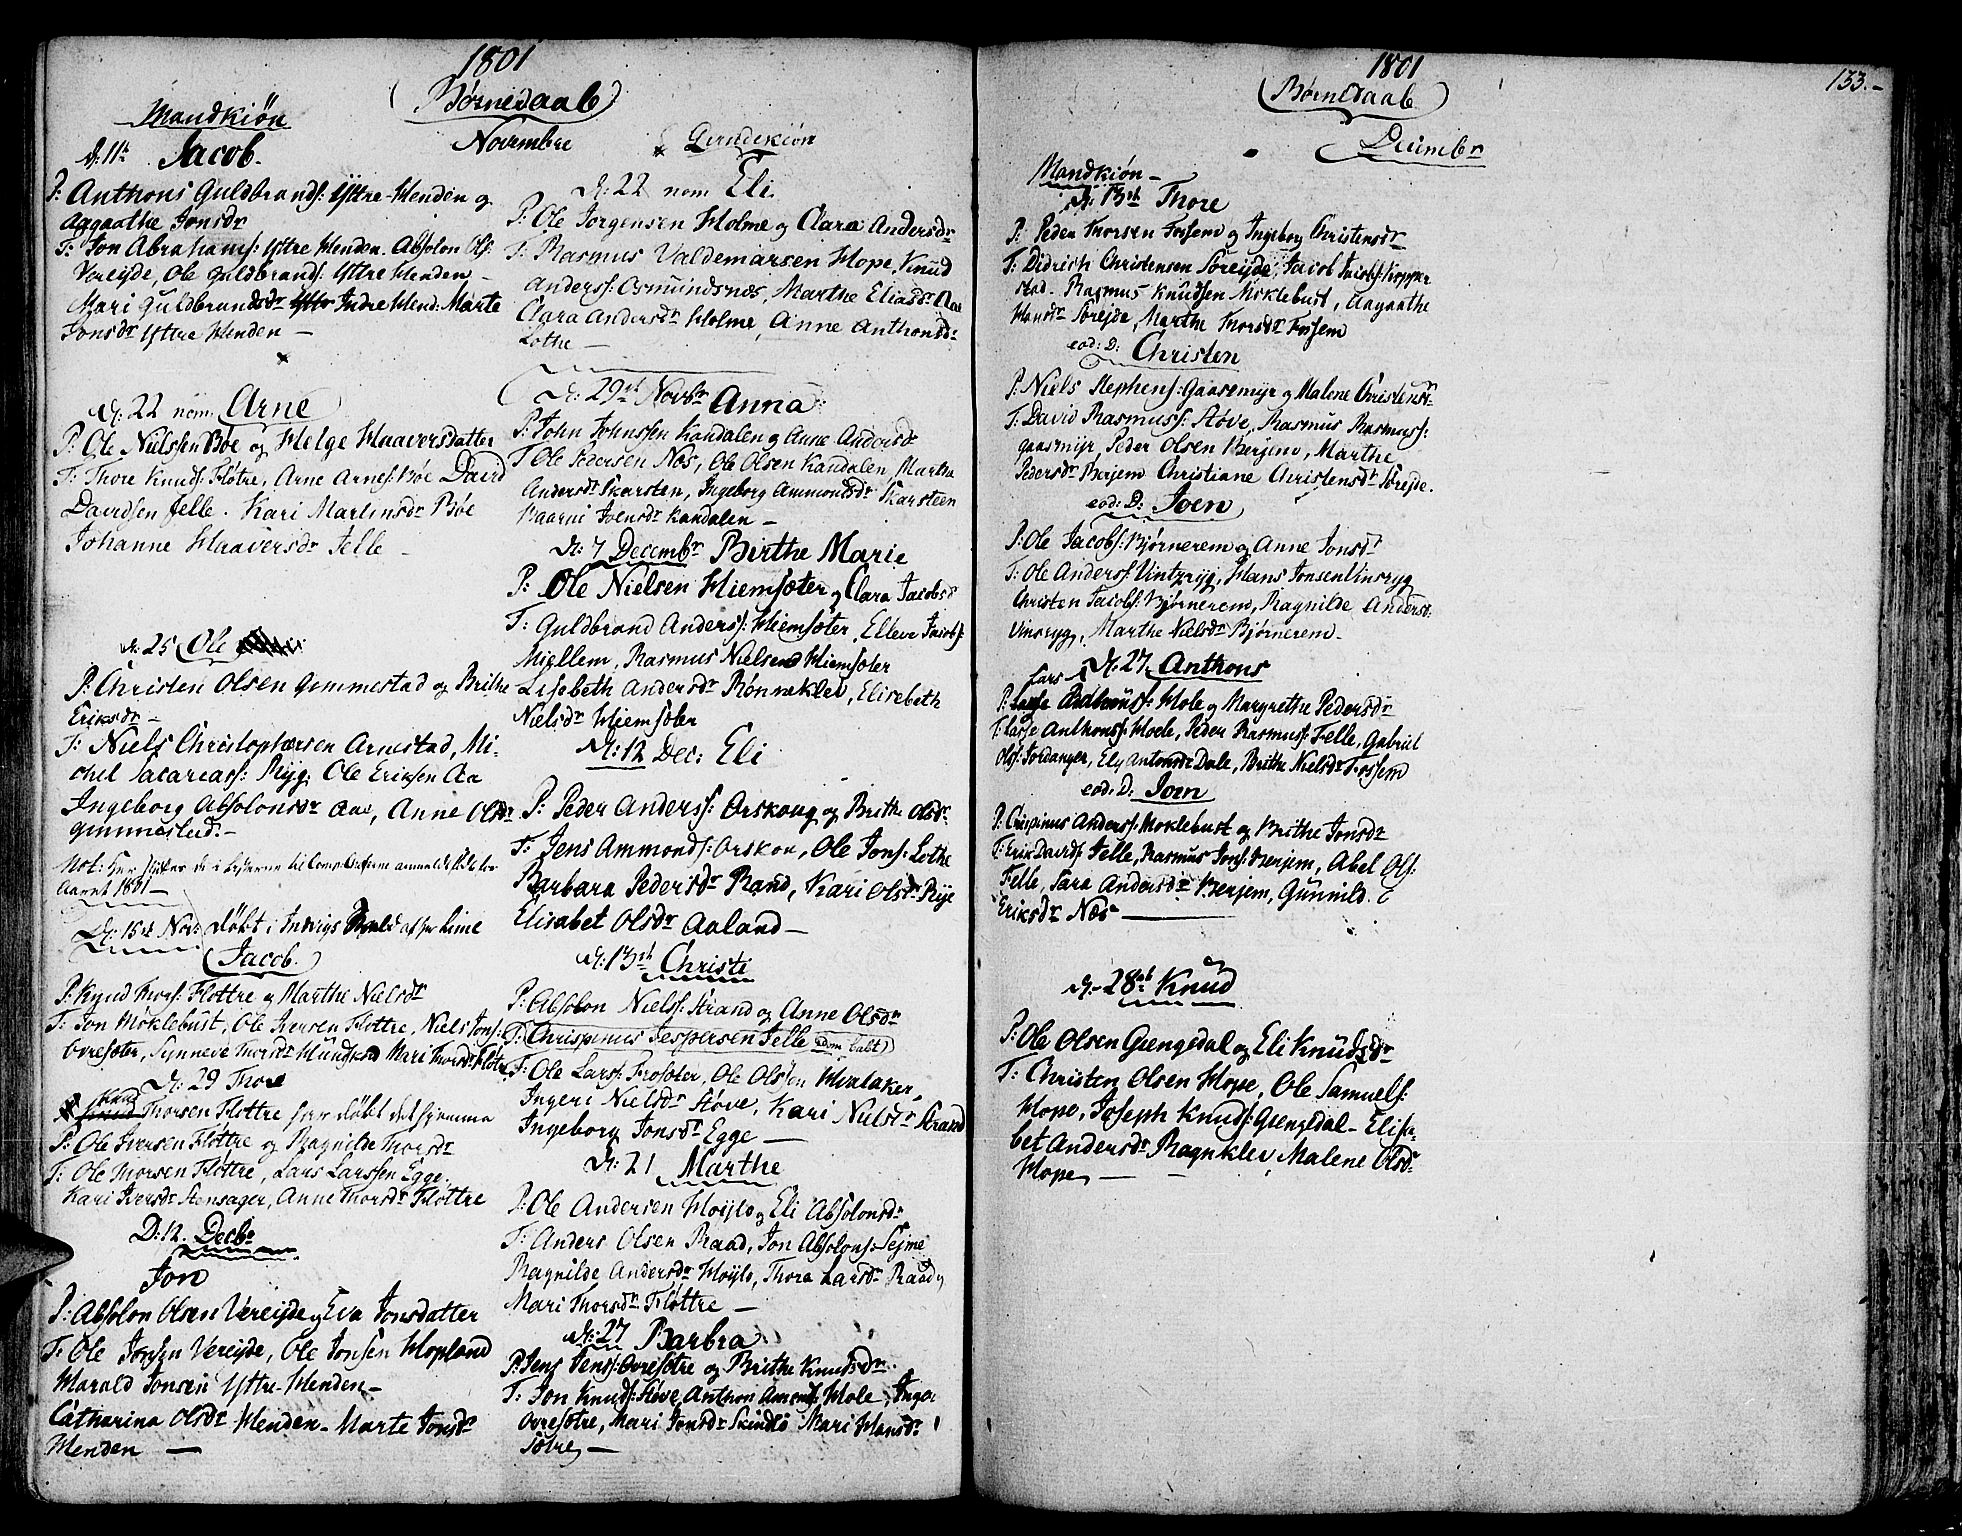 1801
Børnedaab
Mandkiön
Novembre
D: 11te Jacob.
P: Anthons Guldbrands: Ystre-Henden og
Aggaathe Jonsdr
F: Jon Abrahams: Ystre Henden. Absolon Ols:
Vereijde, Ole Guldbrands: Ystre Henden
Mari Guldbrandsdr Indre Hend: Marte
Jonsdr Ystre Henden —
D: 22 nom. Arne
P: Ole Nielssen Bøe og Helge Haaversdatter
F: Thore Knuds: Fløtre, Arne Arnes: Bøe David
Davidsen Felle. Kari Martinsdr Bøe
Johanne Haaversdr Felle —
D: 25 Ole
P: Christen Olsen Gemmestad og Brithe
Eriksdr —
F: Niels Christophersen Arnestad, Mi-
chel Sacariass: Ryg, Ole Eriksen Aa
Ingeborg Absolonsdr Aae, Anne Olsdr
gimmestad. —
Not: her
Aaret 1801 —
D: 15de Nov: døbt i Indvigs af hr Lime
Jacob.
P: Knud Thors: Fløttre og Marthe Nielsdr
F: Jon Møklebust, Ole Iversen Fløttre, Niels Jons:
Øvresæter, Synneve Thorsdr Mari Thorsdr Fløtre
D: 29 Thore
Knud Thorsen Fløttre har døbt det hjemma
P: Ole Iversen Fløttre og Ragnilde Thorsdr
F: Ole Thorsen Fløttre, Lars Larssen Egge.
Kari Iversdr Stensager, Anne Thorsdr Fløttre
D: 12. Decbr
Jon
P: Absolon Olsen Vereijde og Eva Jonsdatter
F: Ole Jonsen Vereijde, Ole Jonsen Hopland
Harald Jonsen Ystre-Henden —
Catharina Olsdr Henden — Marte Jonsdr
Henden —
Qvindekiön
D: 22 nom Eli
P: Ole Jorgensen Holme og Clara Andersdr
F: Rasmus Valdemarsen Hope, Knud
Anderss: Osmundsnæs, Marthe Eliasdr Aae
Clara Andersdr Holme, Anne Anthonsdr
Lothe —
D: 29de Novbr Anna
P: John Johnssen Kandalen og Anne Andersdr
F Ole Pedersen Nos, Ole Olsen Kandalen, Marthe
Andersdr Skarsten, Ingeborg Ammondsdr Skarsteen
Kaarni Joensdr Kandalen —
D: 7 Decembr Birthe Marie
P: Ole Nielsen Hiemsæter og Clara Jacobsdr
F: Guldbrand Anderss: Hiemsæter, Elleve Jacobs:
Miellem, Rasmus Nielsen Hiemsæter
Lisebeth Andersdr Rønneklev, Elisebeth
Nielsdr Hiemsæter
D: 12 Dec: Eli
P: Peder Anderss: Orskoug og Brithe Olsdr
F: Jens Ammonds: Orskou, Ole Jons: Lothe
Barbara Pedersdr Rand, Kari Olsdr Rye
Elisabet Olsdr Aaland —
D: 13de Christi
P: Absolon Niels: Strand og Anne Olsdr
F: Chrispinus Jespersen Felle
F: Ole Lars: Frosæter, Ole Olssen Hvalaker,
Ingeri Nielsdr Støve, Kari Nielsdr Strand
Ingeborg Jonsdr Egge —
D: 21 Marthe
P: Ole Andersen Hoijlo og Eli Absolonsdr
F: Anders Olsen Raad, Jon Absolons: Sejme
Ragnilde Andersdr Hoijlo, Thora Larsdr Raad
Mari Thorsdr Fløttre —
D: 27 Barbra
P: Jens Jens: Øvresætre og Brithe Knudsdr
F: Jon Knuds: Støve, Anthon Amonds: Hole, Inger
Øvresætre, Mari Jonsdr Skindlo Mari Hansdr
Sætre —
1801
133. —
Børnedaab
Decembr
Mandkiøn —
D: 13de Thore
P: Peder Thorsen Fossem og Ingeborg Christensdr
F: Didrich Christensen Søreijde, Jacob Jacobs: Kopper
stad. Rasmus Knudsen Miklebust, Aagaathe
Hansdr Sørejde, Marthe Thorsdr Fossem
eod: D: Christen
P: Niels Stephens: Gaasemijr og Malene Christensdr
F: David Rasmuss: Støve, Rasmus Rasmuss:
gaasmijr, Peder Olsen Berjem, Marthe
Pedersdr Berjem Christiane Christensdr Sørejde.
eod: D: Joen
P: Ole Jacobs: Bjørnerem og Anne Jonsdr
F: Ole Anderss: Vintzryg, Hans Jonsen Vinsryg
Christen Jacobs: Bjørnerem, Ragnilde Andersd:
Vinsryg, Marthe Nielsdr Bjørnerem —
D: 27 Anthons
P: Lars Hole og Margrethe Pedersdr
F: Lasse Anthons: Hoele, Peder Rasmuss: Felle, Gabriel
Olss: Jordanger, Ely Antonsdr Dale, Brithe Nielsdr Fossem
eod: D: Joen
P: Crispinus Anders: Moklebust og Brithe Jonsdr
F: Erik Davids: Felle, Rasmus Jons: Berjem, Abel Ols:
Felle, Sara Andersdr Berjem, Gunnild
Eriksdr Næs —
D: 28de Knud
P: Ole Olsen Giengedal og Eli Knudsdr
F: Christen Olsen Hope, Ole Samuels:
Hope, Joseph Knuds: Giengedal — Elisa-
bet Andersdr Ragnklev, Malene Olsdr
Hope —